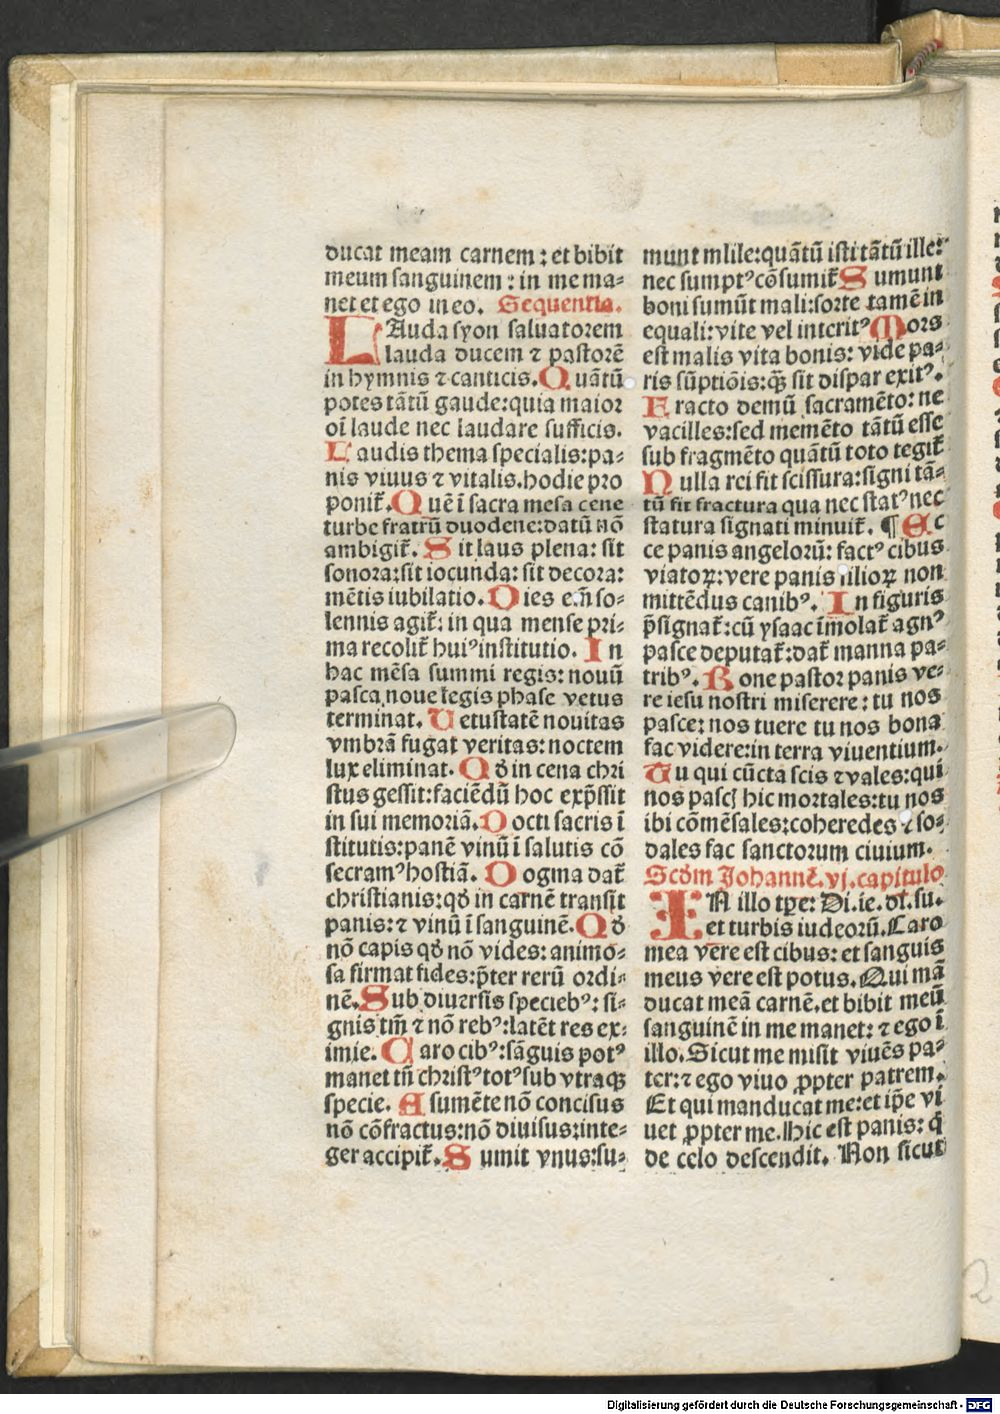 ducat meam carnem: et bibit
meum sanguinem: in me ma-
net et ego in eo. Sequentia.
LAuda syon saluatorem
lauda ducem ⁊ pastorē
in hymnis ⁊ canticis. Quātū
potes tātū gaude: quia maior
oī laude nec laudare sufficis.
Laudis thema specialis: pa-
nis viuus ⁊ vitalis. hodie pro
ponit̄. Quē ī sacra mesa cene
turbe fratrū duodene: datū nō
ambigit̄. Sit laus plena: sit
sonora: sit iocunda: sit decora:
mētis iubilatio. Dies em̄ so-
lennis agit̄: in qua mense pri-
ma recolit̄ huiꝰ institutio. In
hac mēsa summi regis: nouū
pasca noue legis phase vetus
terminat. Uetustatē nouitas
vmbrā fugat veritas: noctem
lux eliminat. Qd̄ in cena chri
stus gessit: faciēdū hoc exp̄ssit
in sui memoriā. Docti sacris ī
stitutis: panē vinū ī salutis cō
secramꝰ hostiā. Dogma dat̄
christianis: qd̄ in carnē transit
panis: ⁊ vinū ī sanguinē. Qd̄
nō capis qd̄ nō vides: animo-
sa firmat fides: p̄ter rerū ordi-
nē. Sub diuersis speciebꝰ: si-
gnis tm̄ ⁊ nō rebꝰ: latēt res ex-
imie. Caro cibꝰ: sāguis potꝰ
manet tn̄ christꝰ totꝰ sub vtraqꝫ
specie. A sumēte nō concisus
nō cōfractus: nō diuisus: inte-
ger accipit̄. Sumit vnus: su-
munt mlile: quātū isti tātū ille:
nec sumptꝰ cōsumit̄ Sumunt
boni sumūt mali: sorte tamē in
equali: vite vel interitꝰ Mors
est malis vita bonis: vide pa-
ris sūptiōis: qꝫ sit dispar exitꝰ.
Fracto demū sacramēto: ne
vacilles: sed memēto tātū esse
sub fragmēto quātū toto tegit̄
Nulla rei fit scissura: signi tā-
tū fit fractura qua nec statꝰ nec
statura signati minuit̄. ¶ Ec
ce panis angelorū: factꝰ cibus
viatoꝝ: vere panis filioꝝ non
mittēdus canibꝰ. In figuris
p̄signat̄: cū ysaac īmolat̄ agnꝰ
pasce deputat̄: dat̄ manna pa-
tribꝰ. Bone pastor panis ve-
re iesu nostri miserere: tu nos
pasce: nos tuere tu nos bona
fac videre: in terra viuentium.
Tu qui cūcta scis ⁊ vales: qui
nos pascis hic mortales: tu nos
ibi cōmēsales: coheredes ⁊ so-
dales fac sanctorum ciuium.
Scd̄m Johannē. vj. capitulo
IN illo tꝑe: Di. ie. dī. su.
et turbis iudeorū. Caro
mea vere est cibus: et sanguis
meus vere est potus. Qui mā
ducat meā carnē. et bibit meū
sanguinē in me manet: ⁊ ego ī
illo. Sicut me misit viuēs pa-
ter: ⁊ ego viuo ꝓpter patrem.
Et qui manducat me: et ip̄e vi
uet ꝓpter me. Hic est panis: q̄
de celo descendit. Non sicut
Digitalisierung gefördert durch die Deutsche Forschungsgemeinschaft - DFG